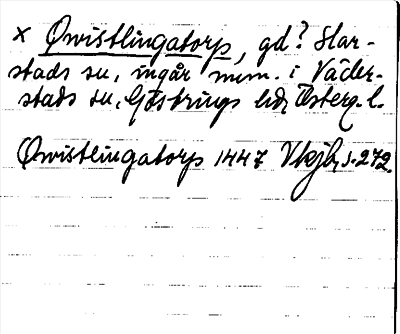 x Qwistlingatorp, gd? Har-
stads sn, ingår num. i Väder-
stads sn, Göstrings hd, Österg. l.
Qwistlingatorp 1447 Vkjb s. 272.